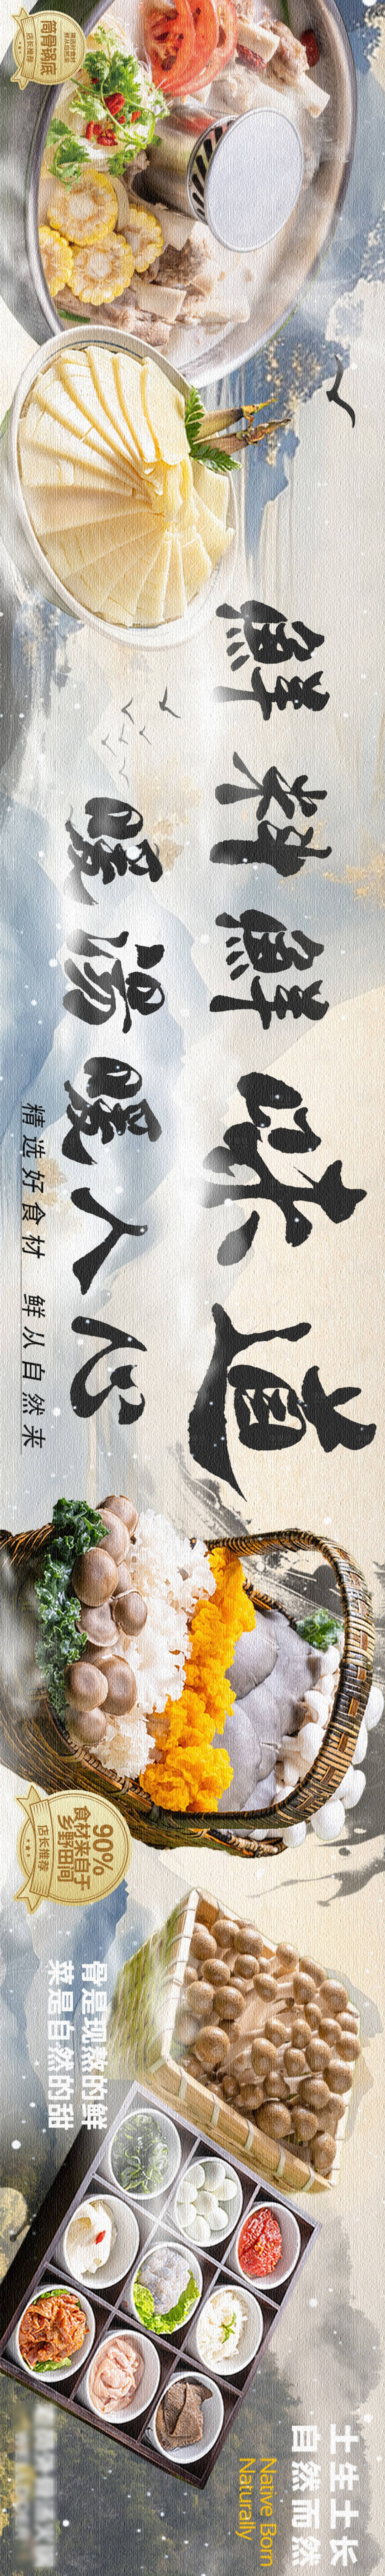 筒骨锅底
店长推荐
鲜料鲜味道
暖汤暖人心
精选好食材 鲜从自然来
90%
食材来自于
乡野田间
店长推荐
骨是现熬的鲜
菜是自然的甜
土生土长
自然而然
Native Born
Naturally